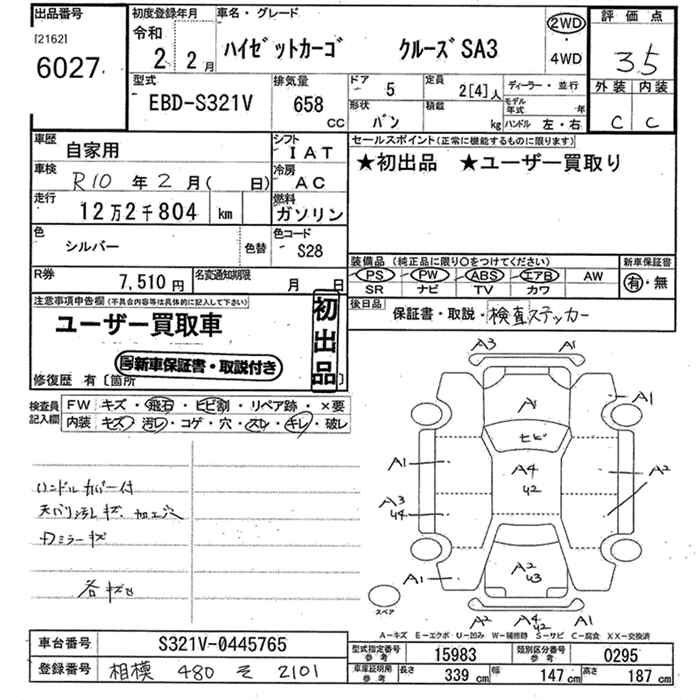 出品番号 初度登録年月 車名・グレード 評価点
[2162] 令和
6027 2 2月 ハイゼットカーゴ クルーズSA3 2WD 3.5
4WD
型式 排気量 ドア 5 定員 2[4]人 ディーラー・並行 外装 内装
EBD-S321V 658 CC 形状 バン 積載 kg モデル年式 年 ハンドル 左・右 C C
車歴 自家用 シフト IAT セールスポイント(正常に機能するものに限ります)
車検 R10年2月( 日) 冷房 AC ★初出品 ★ユーザー買取り
走行 12万2千804 km 燃料 ガソリン
色 シルバー 色替 色コード S28
装備品(純正品に限り○をつけてください) 新車保証書
R券 7,510円 名変通知期限 月 日 PS PW ABS エアB AW 有・無
SR ナビ TV カワ
注意事項申告欄(不具合内容等は具体的に記入して下さい) 初出品 後日品 保証書・取説・検査ステッカー
ユーザー買取車
新車保証書・取説付き
修復歴 有〔箇所
検査員記入欄 FW キズ・飛石・ヒビ割・リペア跡・×要
内装 キズ・汚レ・コゲ・穴・スレ・キレ・破レ
A3 A1
A1 A1
ヒビ
A1 A4 A2
42
ハンドルカバー付
天バリ汚レ キズ、加工穴 A3
44
カミラーキズ
各キズ A1 A2 A1
43
スペア
A2 A4 A1
42
A-キズ E-エクボ U-凹み W-補修跡 S-サビ C-腐食 XX-交換済
車台番号 S321V-0445765 型式指定番号 参考 15983 類別区分番号 参考 0295
登録番号 相模 480 そ 2101 車庫証明用 参考 長さ 339 cm 幅 147 cm 高さ 187 cm